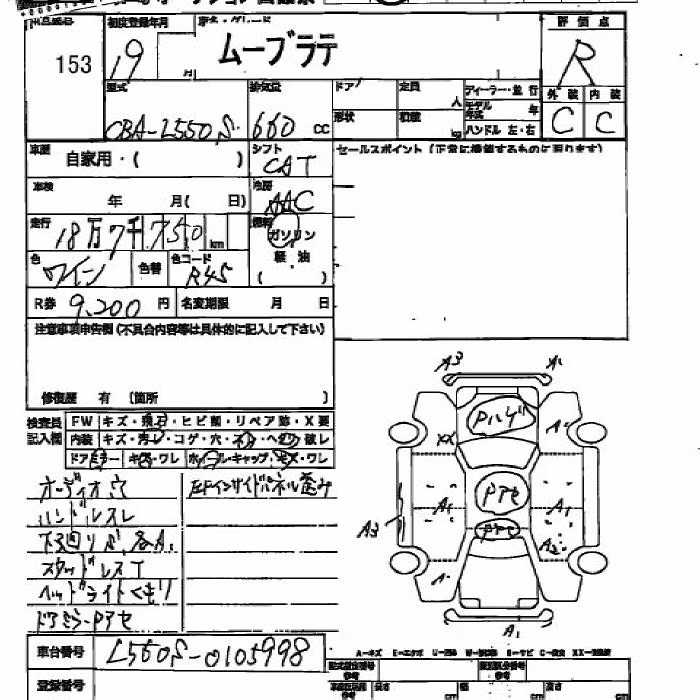 153
初度登録年月
19 月
車名・グレード
ムーブラテ
評価点
R
外装 内装
C C
型式
CBA-L550S
排気量
660 cc
ドア
定員 人
ディーラー・並行
モデル年式 年
形状
積載 kg
ハンドル 左・右
車歴
自家用・( )
シフト
CAT
セールスポイント(正常に機能するものに限ります)
車検 年 月( 日)
冷房
AAC
走行
18万7千750 km
燃料
ガソリン
軽油
( )
色
ワイン
色替
色コード
R45
R券 9,200 円
名変期限 月 日
注意事項申告欄(不具合内容等は具体的に記入して下さい)
修復歴 有 〔箇所 〕
検査員記入欄
FW キズ・飛石・ヒビ割・リペア跡・X要
内装 キズ・汚レ・コゲ・穴
ドアミラー
オーディオ穴
左Fインサイドパネル歪み
ハンドルスレ
下廻りサビ、各A1
スタッドレスT
ヘッドライトくもり
ドアミラーPアセ
A3
Pハゲ
XX
Pアセ
A1
A1
Pアセ
A3
A2
A1
車台番号
L550S-0105998
登録番号
A=キズ E=エクボ
長さ cm
幅 cm
高さ cm